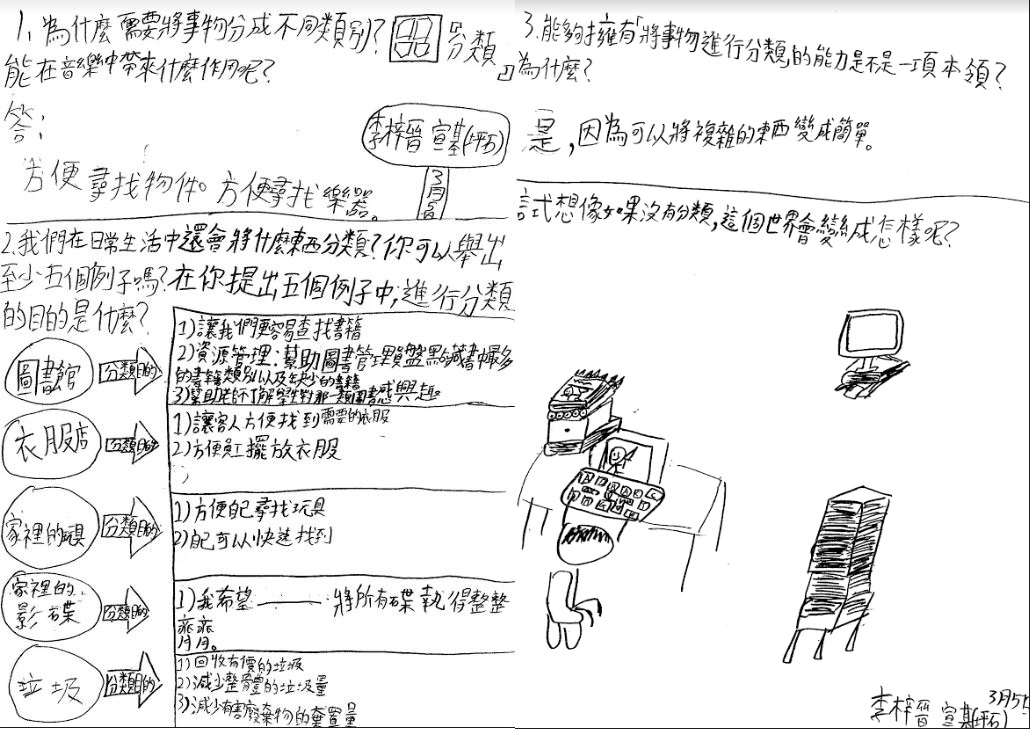 1、為什麼需要將事物分成不同類別?「品分類」
能在音樂中帶來什麼作用呢?
答:
李梓晉 宣基(坪石)
方便尋找物件。方便尋找樂器。
2.我們在日常生活中還會將什麼東西分類?你可以舉出
至少五個例子嗎?在你提出五個例子中,進行分類
的目的是什麼?
圖書館
分類目的
1)讓我們更容易查找書籍
2)資源管理:幫助圖書管理員盤點藏書中最多
的書籍類別以及缺少的書籍
3)幫助老師了解學生對那一類圖書感興趣
衣服店
分類目的
1)讓客人方便找到需要的衣服
2)方便員工擺放衣服
家裡的玩具
分類目的
1)方便自己尋找玩具
2)自己可以快速找到
家裡的
影碟
分類目的
1)我希望 將所有碟執得整整
齊齊。
垃圾
分類目的
1)回收有價的垃圾
2)減少整體的垃圾量
3)減少有害廢棄物的棄置量
3.能夠擁有「將事物進行分類」的能力是不是一項本領?
為什麼?
是,因為可以將複雜的東西變成簡單。
試想像如果沒有分類,這個世界會變成怎樣呢?
李梓晉 宣基(坪石)
3月5日